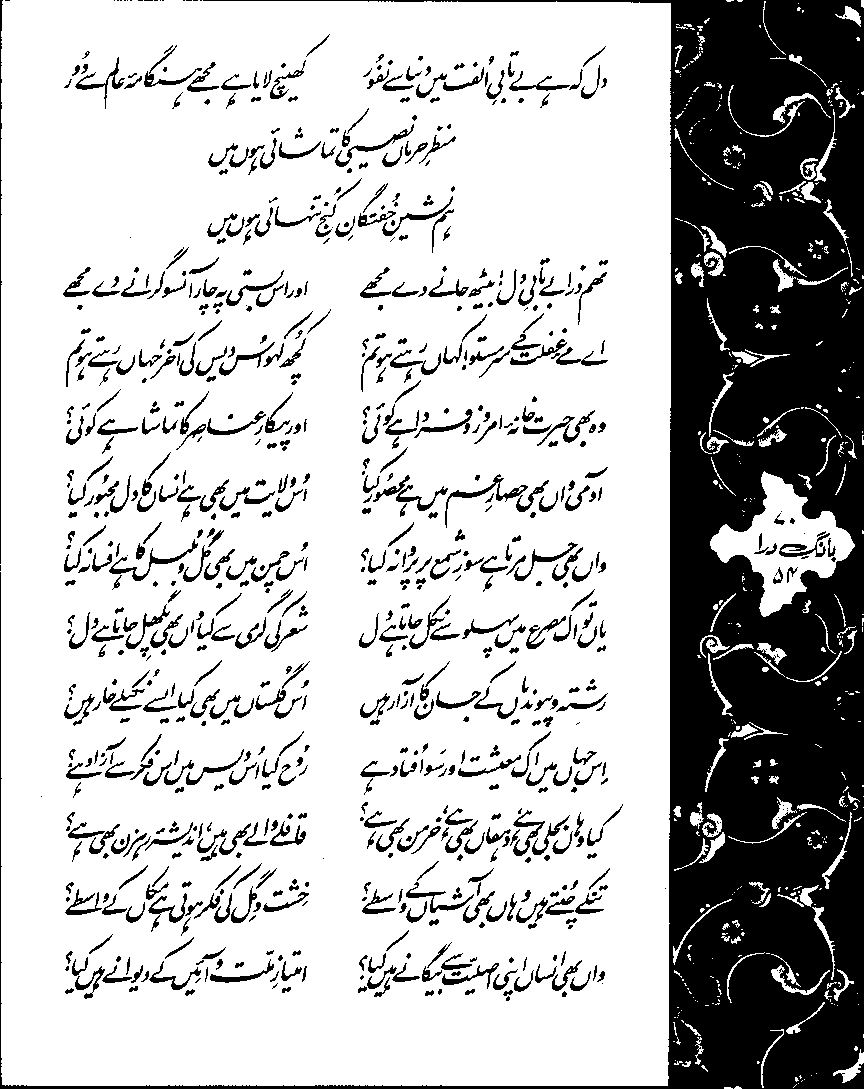 دل کہ ہے بے تابیِ اُلفت میں دنیا سے نفُور کھینچ لایا ہے مجھے ہنگامۂ عالم سے دُور
منظرِ حرماں نصیبی کا تماشائی ہوں میں
ہم نشینِ خُفتگانِ کُنجِ تنہائی ہوں میں
تھم ذرا بے تابیِ دل! بیٹھ جانے دے مجھے اور اس بستی پہ چار آنسو گرانے دے مجھے
اے مےِ غفلت کے سرمستو! کہاں رہتے ہو تم؟ کُچھ کہو اُس دیس کی آخر، جہاں رہتے ہو تم
وہ بھی حیرت خانۂ امروز و فردا ہے کوئی؟ اور پیکارِ عناصر کا تماشا ہے کوئی؟
آدمی واں بھی حصارِ غم میں ہے محصُور کیا؟ اُس ولایت میں بھی ہے انساں کا دل مجبُور کیا؟
واں بھی جل مرتا ہے سوزِ شمع پر پروانہ کیا؟ اُس چمن میں بھی گُل و بُلبل کا ہے افسانہ کیا؟
یاں تو اک مصرع میں پہلو سے نکل جاتا ہے دل شعر کی گرمی سے کیا واں بھی پگھل جاتا ہے دل؟
رشتہ و پیوند یاں کے جان کا آزار ہیں اُس گُلستاں میں بھی کیا ایسے نُکیلے خار ہیں؟
اِس جہاں میں اک معیشت اور سَو اُفتاد ہے رُوح کیا اُس دیس میں اس فکر سے آزاد ہے؟
کیا وہاں بجلی بھی ہے، دہقاں بھی ہے، خرمن بھی ہے؟ قافلے والے بھی ہیں، اندیشۂ رہزن بھی ہے؟
تنکے چُنتے ہیں وہاں بھی آشیاں کے واسطے؟ خِشت و گِل کی فکر ہوتی ہے مکاں کے واسطے؟
واں بھی انساں اپنی اصلیّت سے بیگانے ہیں کیا؟ امتیازِ ملّت و آئیں کے دیوانے ہیں کیا؟
۷۰
بانگِ درا
۵۴